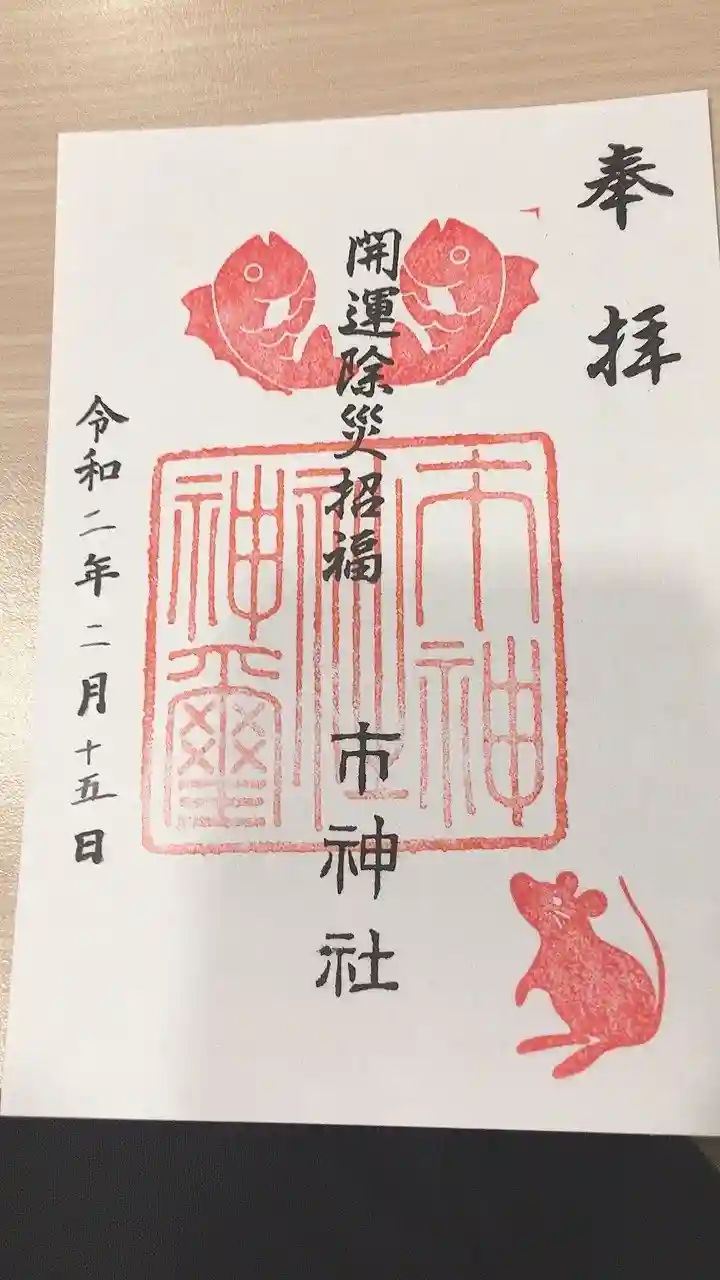 奉拝
開運除災招福
市神社
市神
社
神璽
令和二年二月十五日